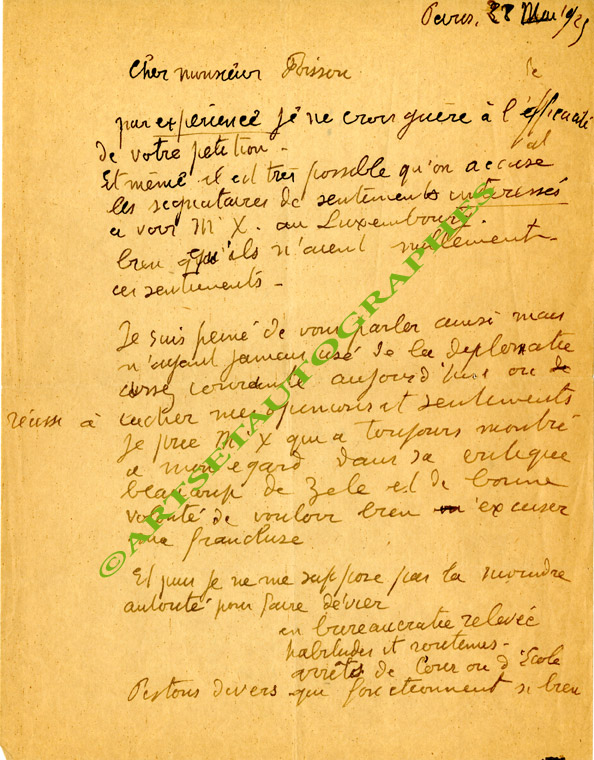 Paris, 28 Mai 1925
Cher monsieur Poisson
par experience je ne crois guère à l'efficacité
de votre petition -
Et même il est très possible qu'on accuse
les signataires de sentiments interessés
a voir Mr X. au Luxembourg.
bien qu'ils n'aient nullement
ces sentiments -
Je suis peiné de vous parler ainsi mais
n'ayant jamais usé de la diplomatie
assez courante aujourd'hui ou
réussi à cacher mes opinions et sentiments
je prie Mr X qui a toujours montré
a mon egard dans sa critique
beaucoup de zele et de bonne
volonté de vouloir bien m'excuser
ma franchise
Et puis je ne me suppose pas la moindre
autorité pour faire dévier
en bureaucratie relevée
habitudes et routines -
arrêtés de Cour ou d'Ecole
Pistons divers qui fonctionnent si bien
©ARTSETAUTOGRAPHES